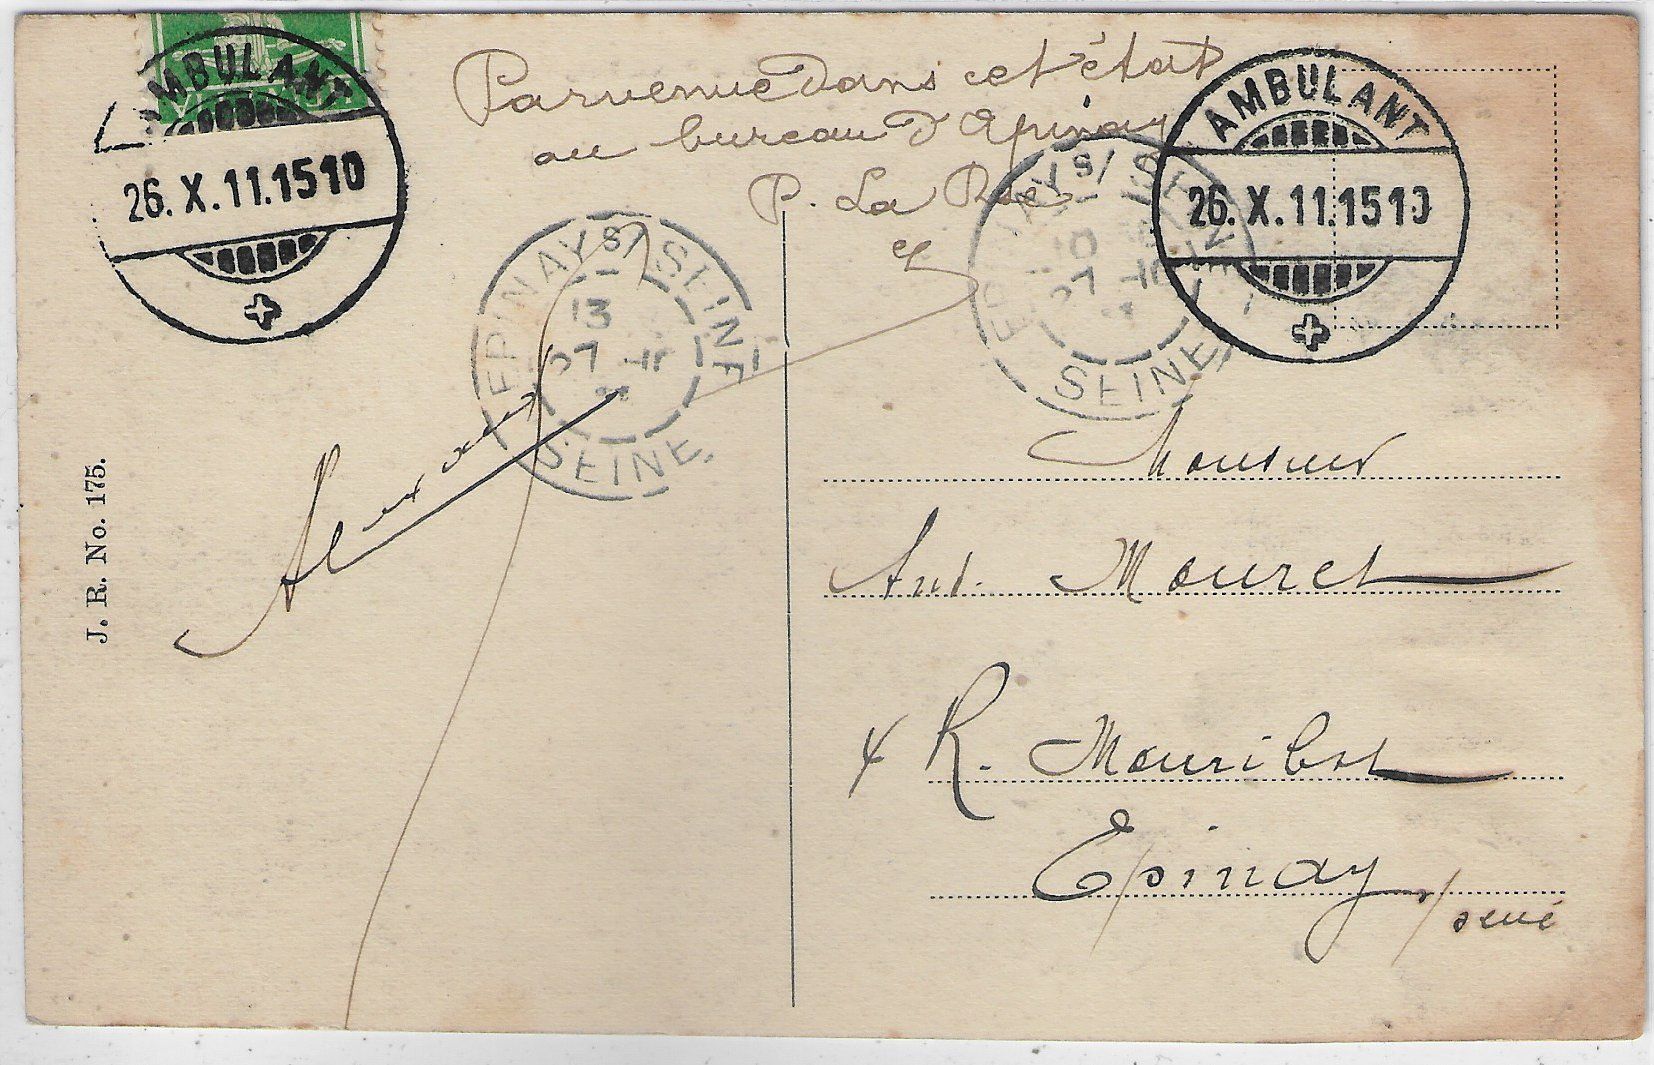 AMBULANT
26. X. 11. 1510
Parvenue dans cet état
au bureau d'Epinay
P. La Rec
AMBULANT
26. X. 11. 1510
EPINAY S/ SEINE
13
27 -10
11
SEINE
EPINAY S/ SEINE
10
27 -10
11
SEINE
J. R. No. 175.
Monsieur
Ant. Mouret
R. Mouribot
Epinay